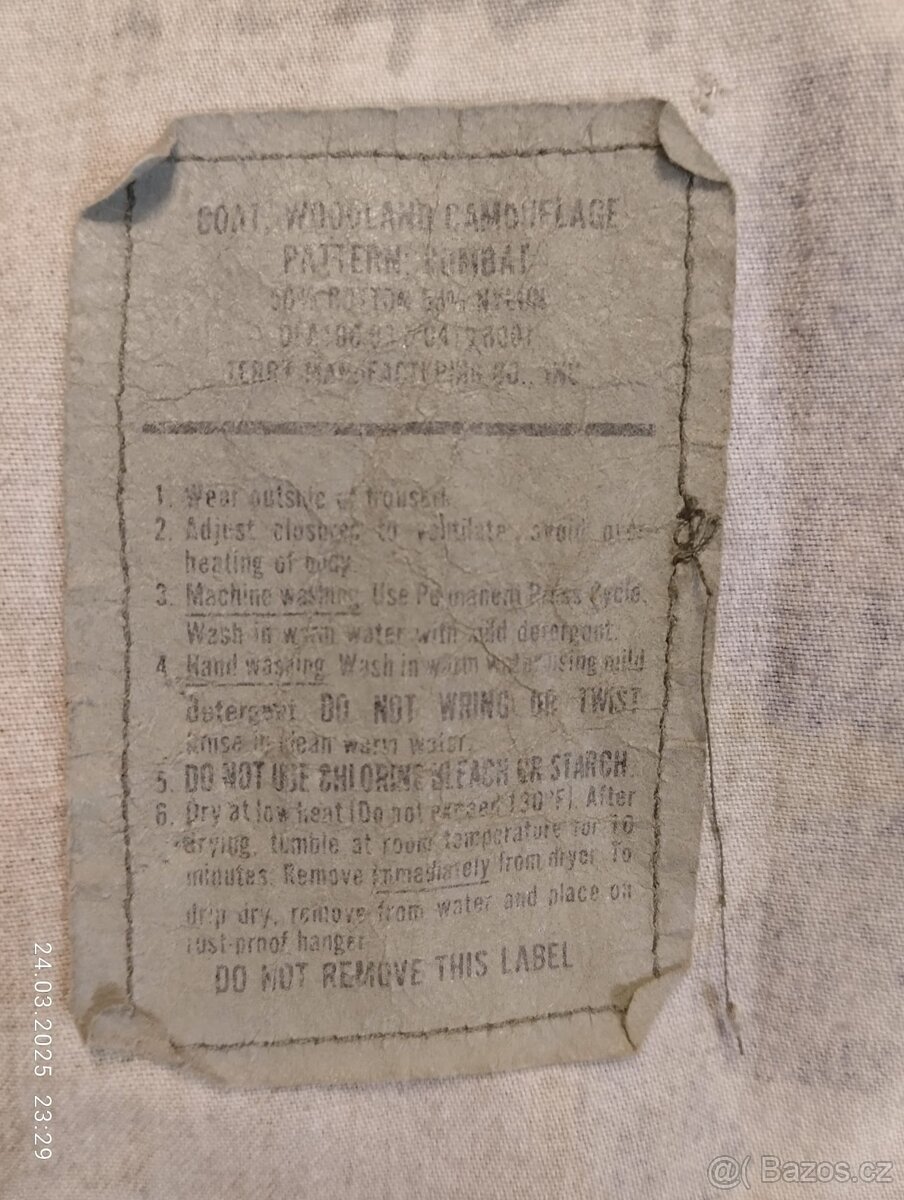 COAT, WOODLAND CAMOUFLAGE
PATTERN, COMBAT
50% COTTON 50% NYLON
TERRY MANUFACTURING CO., INC
1. Wear outside of trousers
2. Adjust closures to ventilate, avoid over
heating of body.
3. Machine washing. Use Permanent Press Cycle.
Wash in warm water with mild detergent.
4. Hand washing. Wash in warm water using mild
detergent. DO NOT WRING OR TWIST
Rinse in clean warm water.
5. DO NOT USE CHLORINE BLEACH OR STARCH.
6. Dry at low heat (Do not exceed 130°F). After
drying, tumble at room temperature for 10
minutes. Remove immediately from dryer. To
drip dry, remove from water and place on
rust-proof hanger
DO NOT REMOVE THIS LABEL
24.03.2025 23:29
@( Bazos.cz